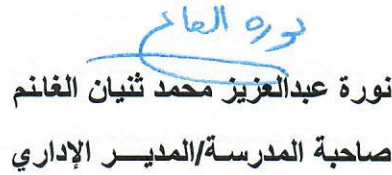 نورة الغانم
نورة عبدالعزيز محمد ثنيان الغانم
صاحبة المدرسة/المديـــر الإداري